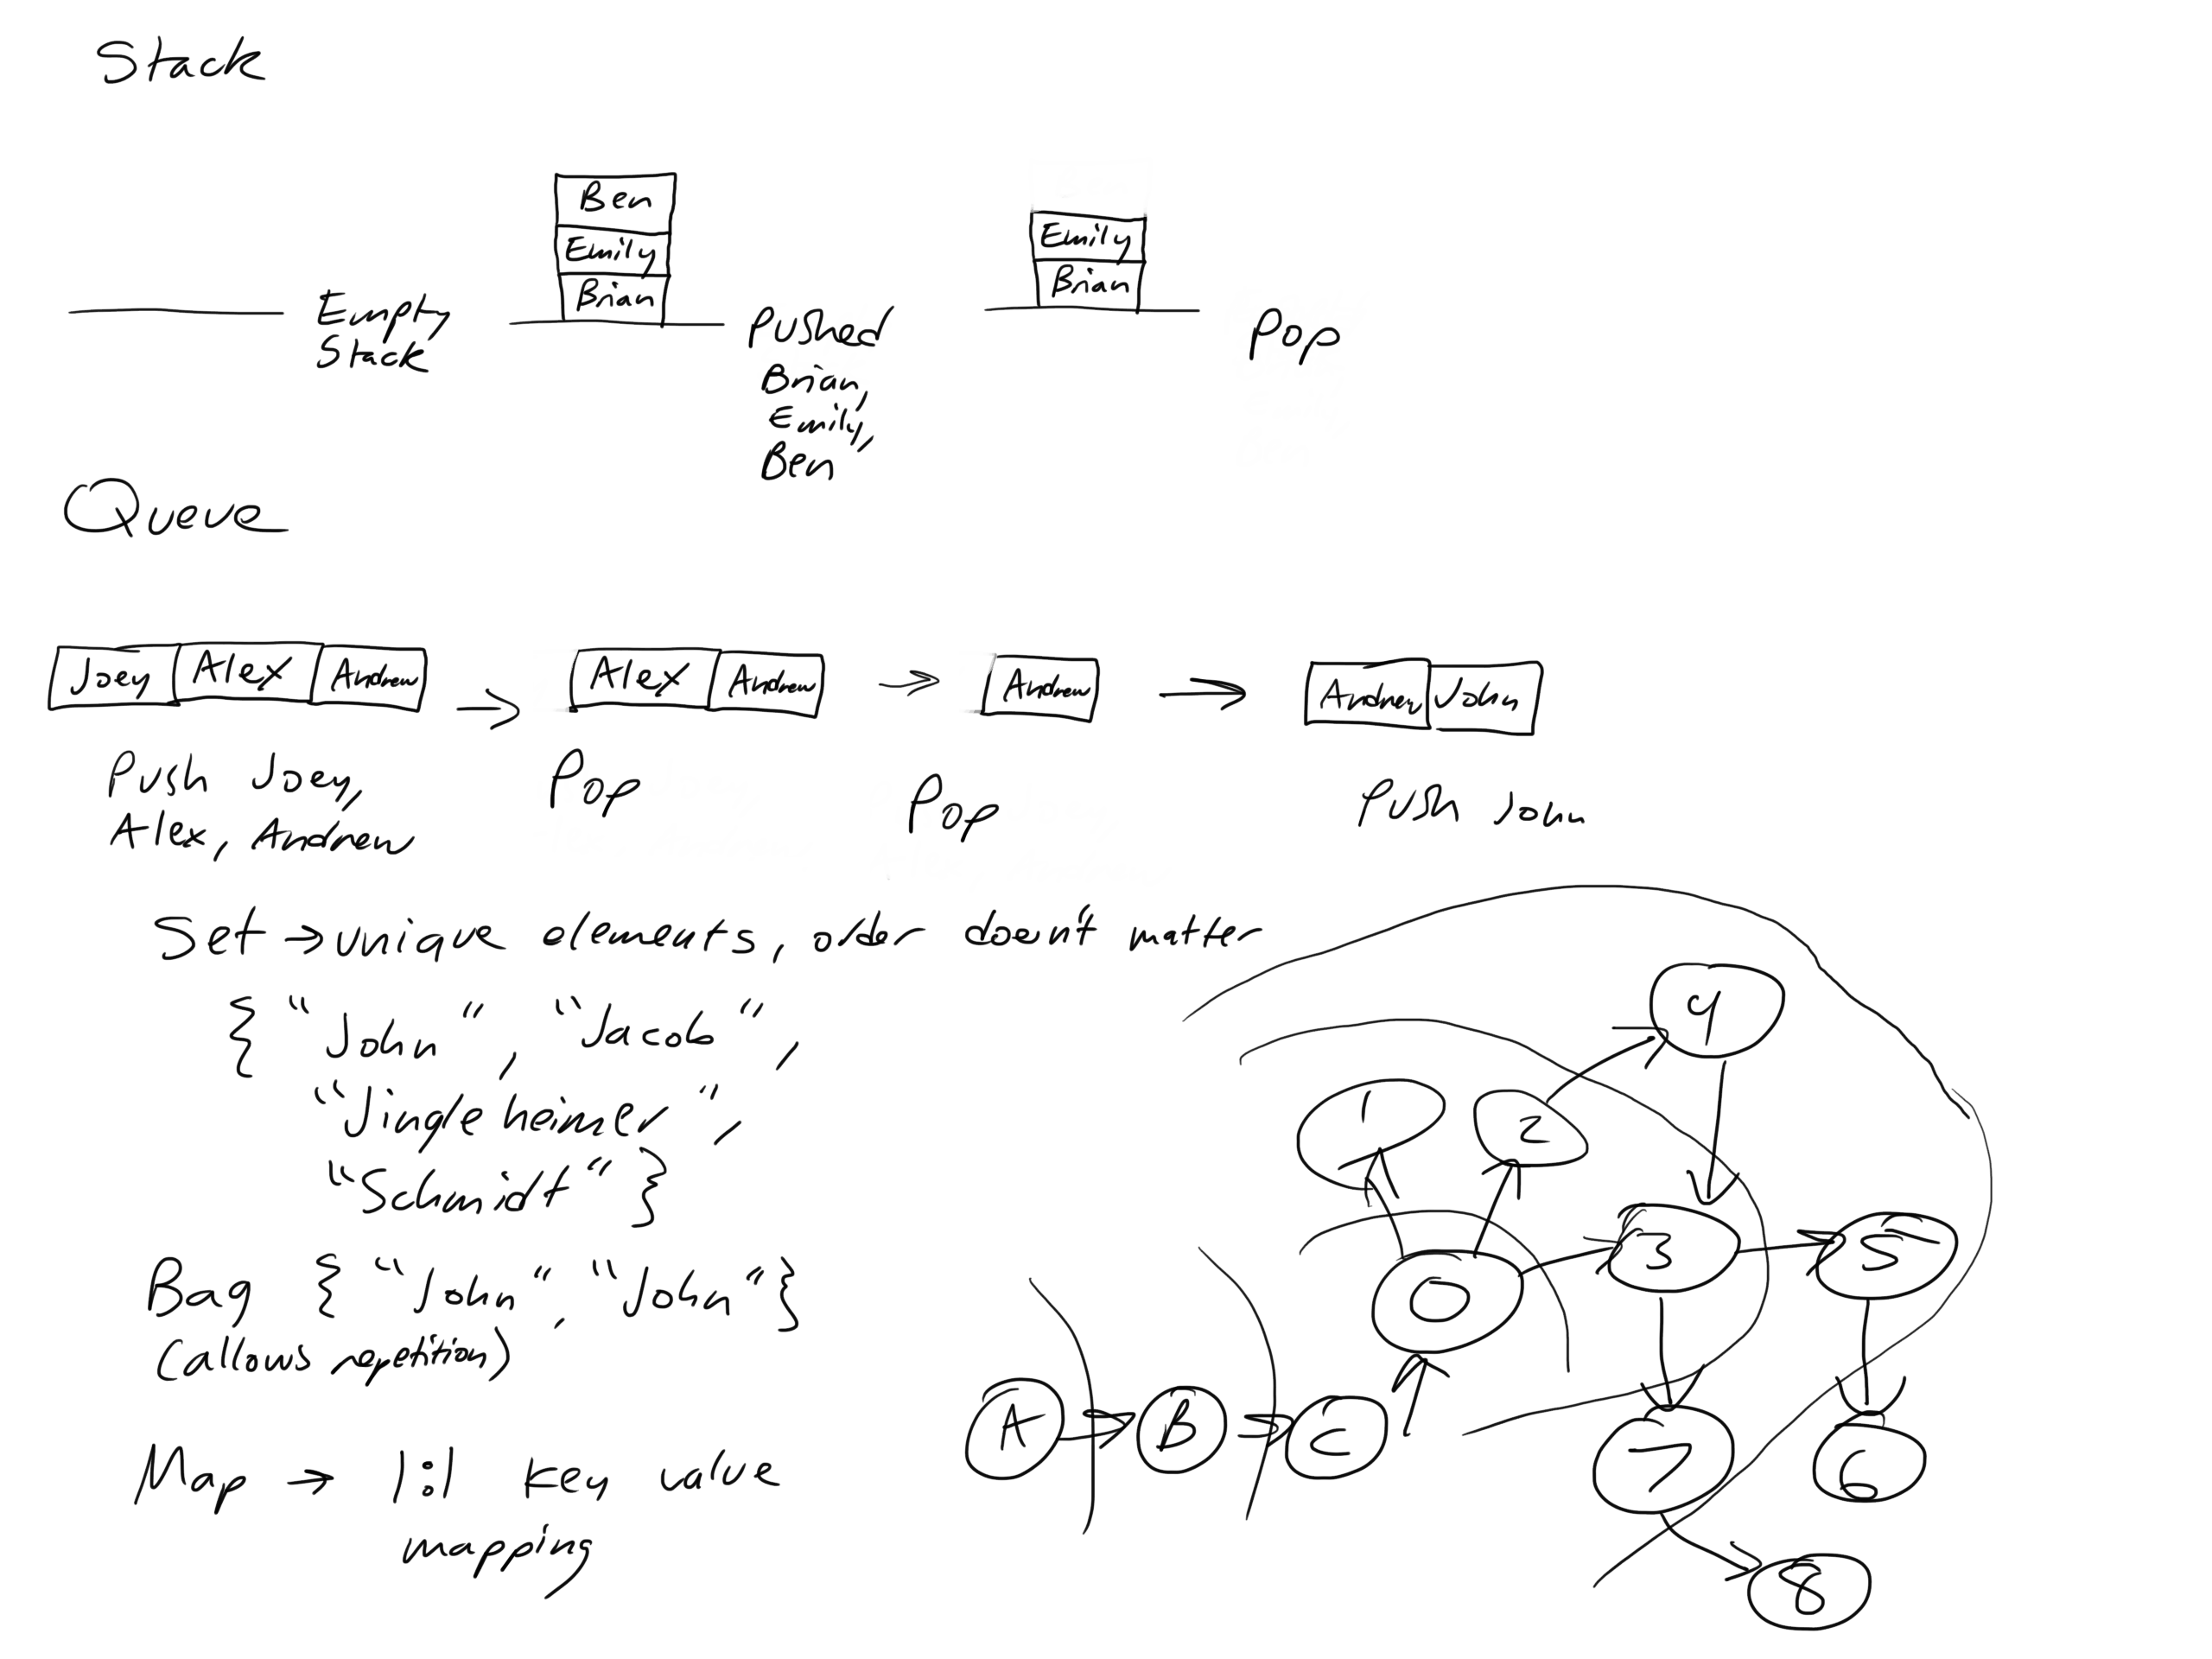 Stack
Ben
Emily
Brian
Empty
Stack
Pushed
Brian,
Emily,
Ben
Emily
Brian
Pop
Queue
Joey Alex Andrew
Push Joey,
Alex, Andrew
Alex Andrew
Pop
Andrew
Pop
Andrew John
Push John
Set → unique elements, order doesn't matter
{ "John", "Jacob",
"Jingleheimer",
"Schmidt" }
Bag { "John", "John" }
(allows repetition)
Map → 1:1 key value
mapping
4
1 2
3 5
0
A B C
7 6
8